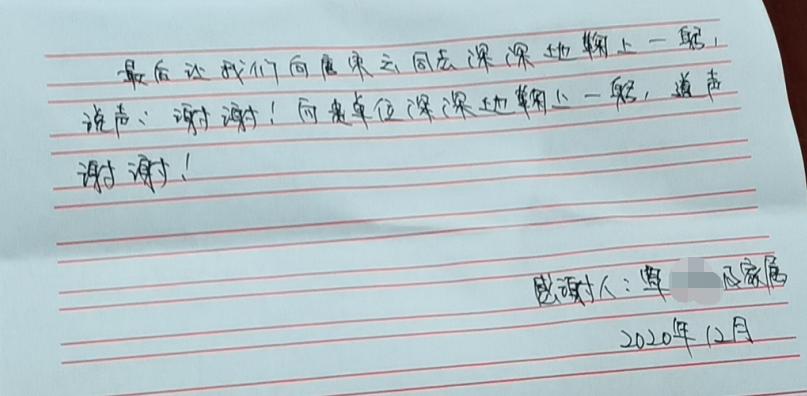 最后让我们向唐荣云同志深深地鞠上一躬，
说声：谢谢！向贵单位深深地鞠上一躬，道声
谢谢！
感谢人：覃 及家属
2020年12月